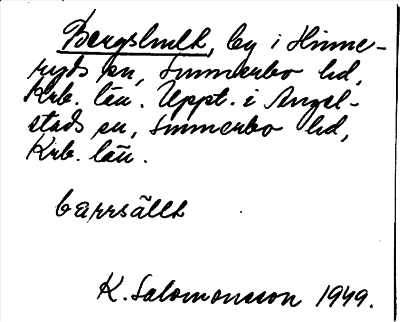 Bergshult, by i Hinne-
ryds sn, Sunnerbo hd,
Krb. län. Uppt. i Angel-
stads sn, Sunnerbo hd,
Krb. län.
bærrsä̃llt
K. Salomonsson 1949.